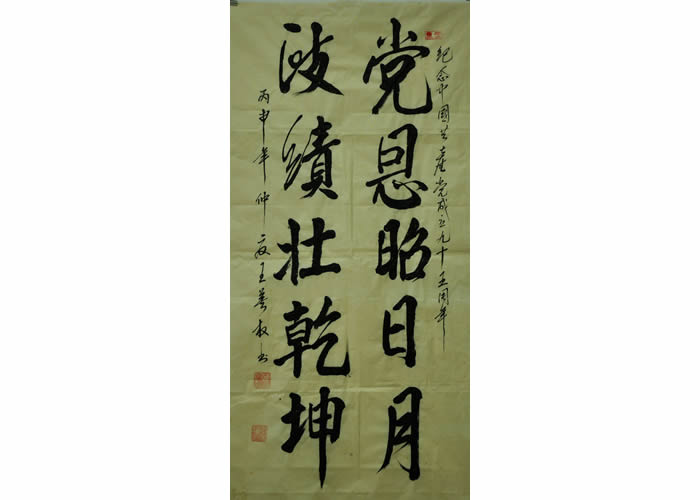 纪念中国共產党成立九十五周年
党恩昭日月
政績壮乾坤
丙申年仲夏王善权书